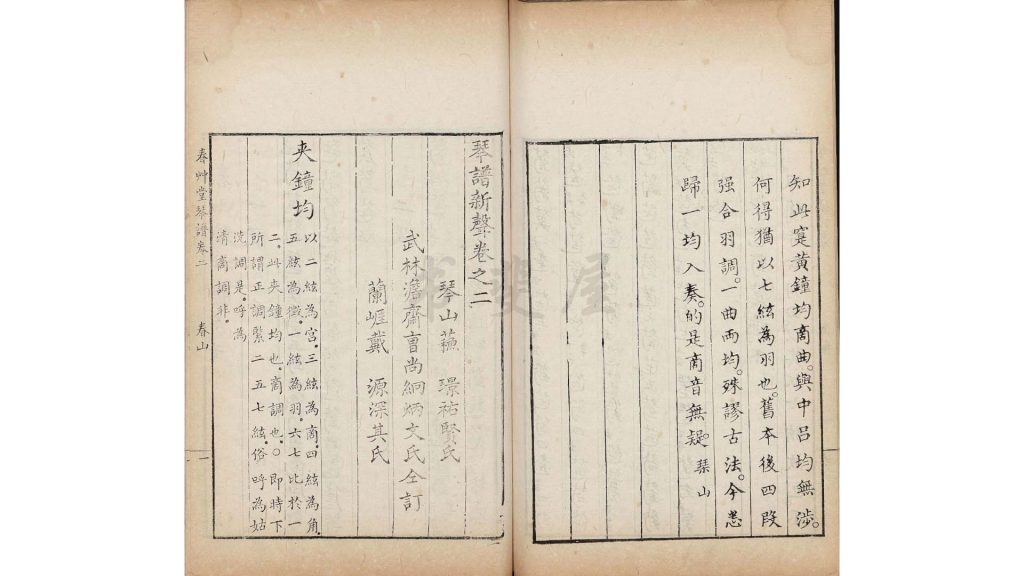 知此寔黃鐘均商曲。與中呂均無涉。
何得猶以七絃為羽也。舊本後四段
强合羽調。一曲兩均。殊謬古法。今悉
歸一均入奏。的是商音無疑。琴山
琴譜新聲卷之二
琴山蘓 璟祐賢氏
武林澹齋曺尚絅炳文氏仝訂
蘭崕戴 源深其氏
夾鐘均
以二絃為宮。三絃為商。四絃為角。
五絃為徵。一絃為羽。六七比於一
二。此夾鐘均也。商調也。〇即時下
所謂正調緊二五七絃。俗呼為姑
洗調是。呼為
清商調非。
春艸堂琴譜卷二 春山 一
尤斐屋